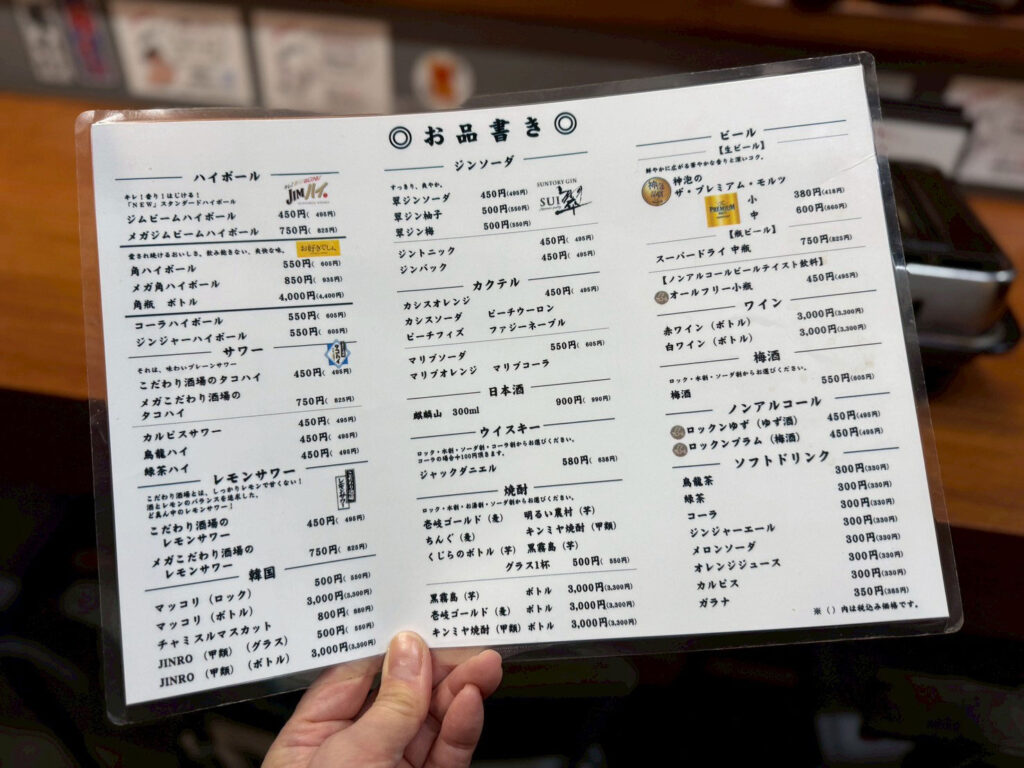 ◎ お品書き ◎
ハイボール
キレ！香り！はじける！
「NEW」スタンダードハイボール
JINハイ。
ジムビームハイボール 450円( 495円)
メガジムビームハイボール 750円( 825円)
愛され続けるおいしさ。飲み飽きない、爽快な味。
お好きでしょ
角ハイボール 550円( 605円)
メガ角ハイボール 850円( 935円)
角瓶 ボトル 4,000円(4,400円)
コーラハイボール 550円( 605円)
ジンジャーハイボール 550円( 605円)
サワー
それは、味わいプレーンサワー
こだわり酒場のタコハイ 450円( 495円)
メガこだわり酒場の
タコハイ 750円( 825円)
カルピスサワー 450円( 495円)
烏龍ハイ 450円( 495円)
緑茶ハイ 450円( 495円)
レモンサワー
こだわり酒場とは、しっかりレモンで甘くない！
酒とレモンのバランスを追求した、
ど真ん中のレモンサワー！
こだわり酒場の
レモンサワー 450円( 495円)
メガこだわり酒場の
レモンサワー 750円( 825円)
韓国
マッコリ（ロック） 500円( 550円)
マッコリ（ボトル） 3,000円(3,300円)
チャミスルマスカット 800円( 880円)
JINRO （甲類）（グラス） 500円( 550円)
JINRO （甲類）（ボトル） 3,000円(3,300円)
ジンソーダ
すっきり、爽やか。
SUNTORY GIN
SUI 翠
翠ジンソーダ 450円(495円)
翠ジン柚子 500円(550円)
翠ジン梅 500円(550円)
ジントニック 450円( 495円)
ジンバック 450円( 495円)
カクテル
カシスオレンジ 450円( 495円)
カシスソーダ ピーチウーロン
ピーチフィズ ファジーネーブル
マリブソーダ 550円( 605円)
マリブオレンジ マリブコーラ
日本酒
麒麟山 300ml 900円( 990円)
ウイスキー
ロック・水割・ソーダ割・コーラ割からお選びください。
コーラの場合＋100円頂きます。
ジャックダニエル 580円( 638円)
焼酎
ロック・水割・お湯割・ソーダ割からお選びください。
壱岐ゴールド（麦） 明るい農村（芋）
ちんぐ（麦） キンミヤ焼酎（甲類）
くじらのボトル（芋） 黒霧島（芋）
グラス1杯 500円( 550円)
黒霧島（芋） ボトル 3,000円(3,300円)
壱岐ゴールド（麦） ボトル 3,000円(3,300円)
キンミヤ焼酎（甲類）ボトル 3,000円(3,300円)
ビール
【生ビール】
鮮やかに広がる華やかな香りと深いコク。
神泡の
ザ・プレミアム・モルツ
PREMIUM
小 380円(418円)
中 600円(660円)
【瓶ビール】
スーパードライ 中瓶 750円(825円)
【ノンアルコールビールテイスト飲料】
オールフリー小瓶 450円( 495円)
ワイン
赤ワイン（ボトル） 3,000円(3,300円)
白ワイン（ボトル） 3,000円(3,300円)
梅酒
ロック・水割・ソーダ割からお選びください。
梅酒 550円(605円)
ノンアルコール
ロックンゆず（ゆず酒） 450円(495円)
ロックンプラム（梅酒） 450円(495円)
ソフトドリンク
烏龍茶 300円(330円)
緑茶 300円(330円)
コーラ 300円(330円)
ジンジャーエール 300円(330円)
メロンソーダ 300円(330円)
オレンジジュース 300円(330円)
カルピス 300円(330円)
ガラナ 350円(385円)
※（）内は税込み価格です。